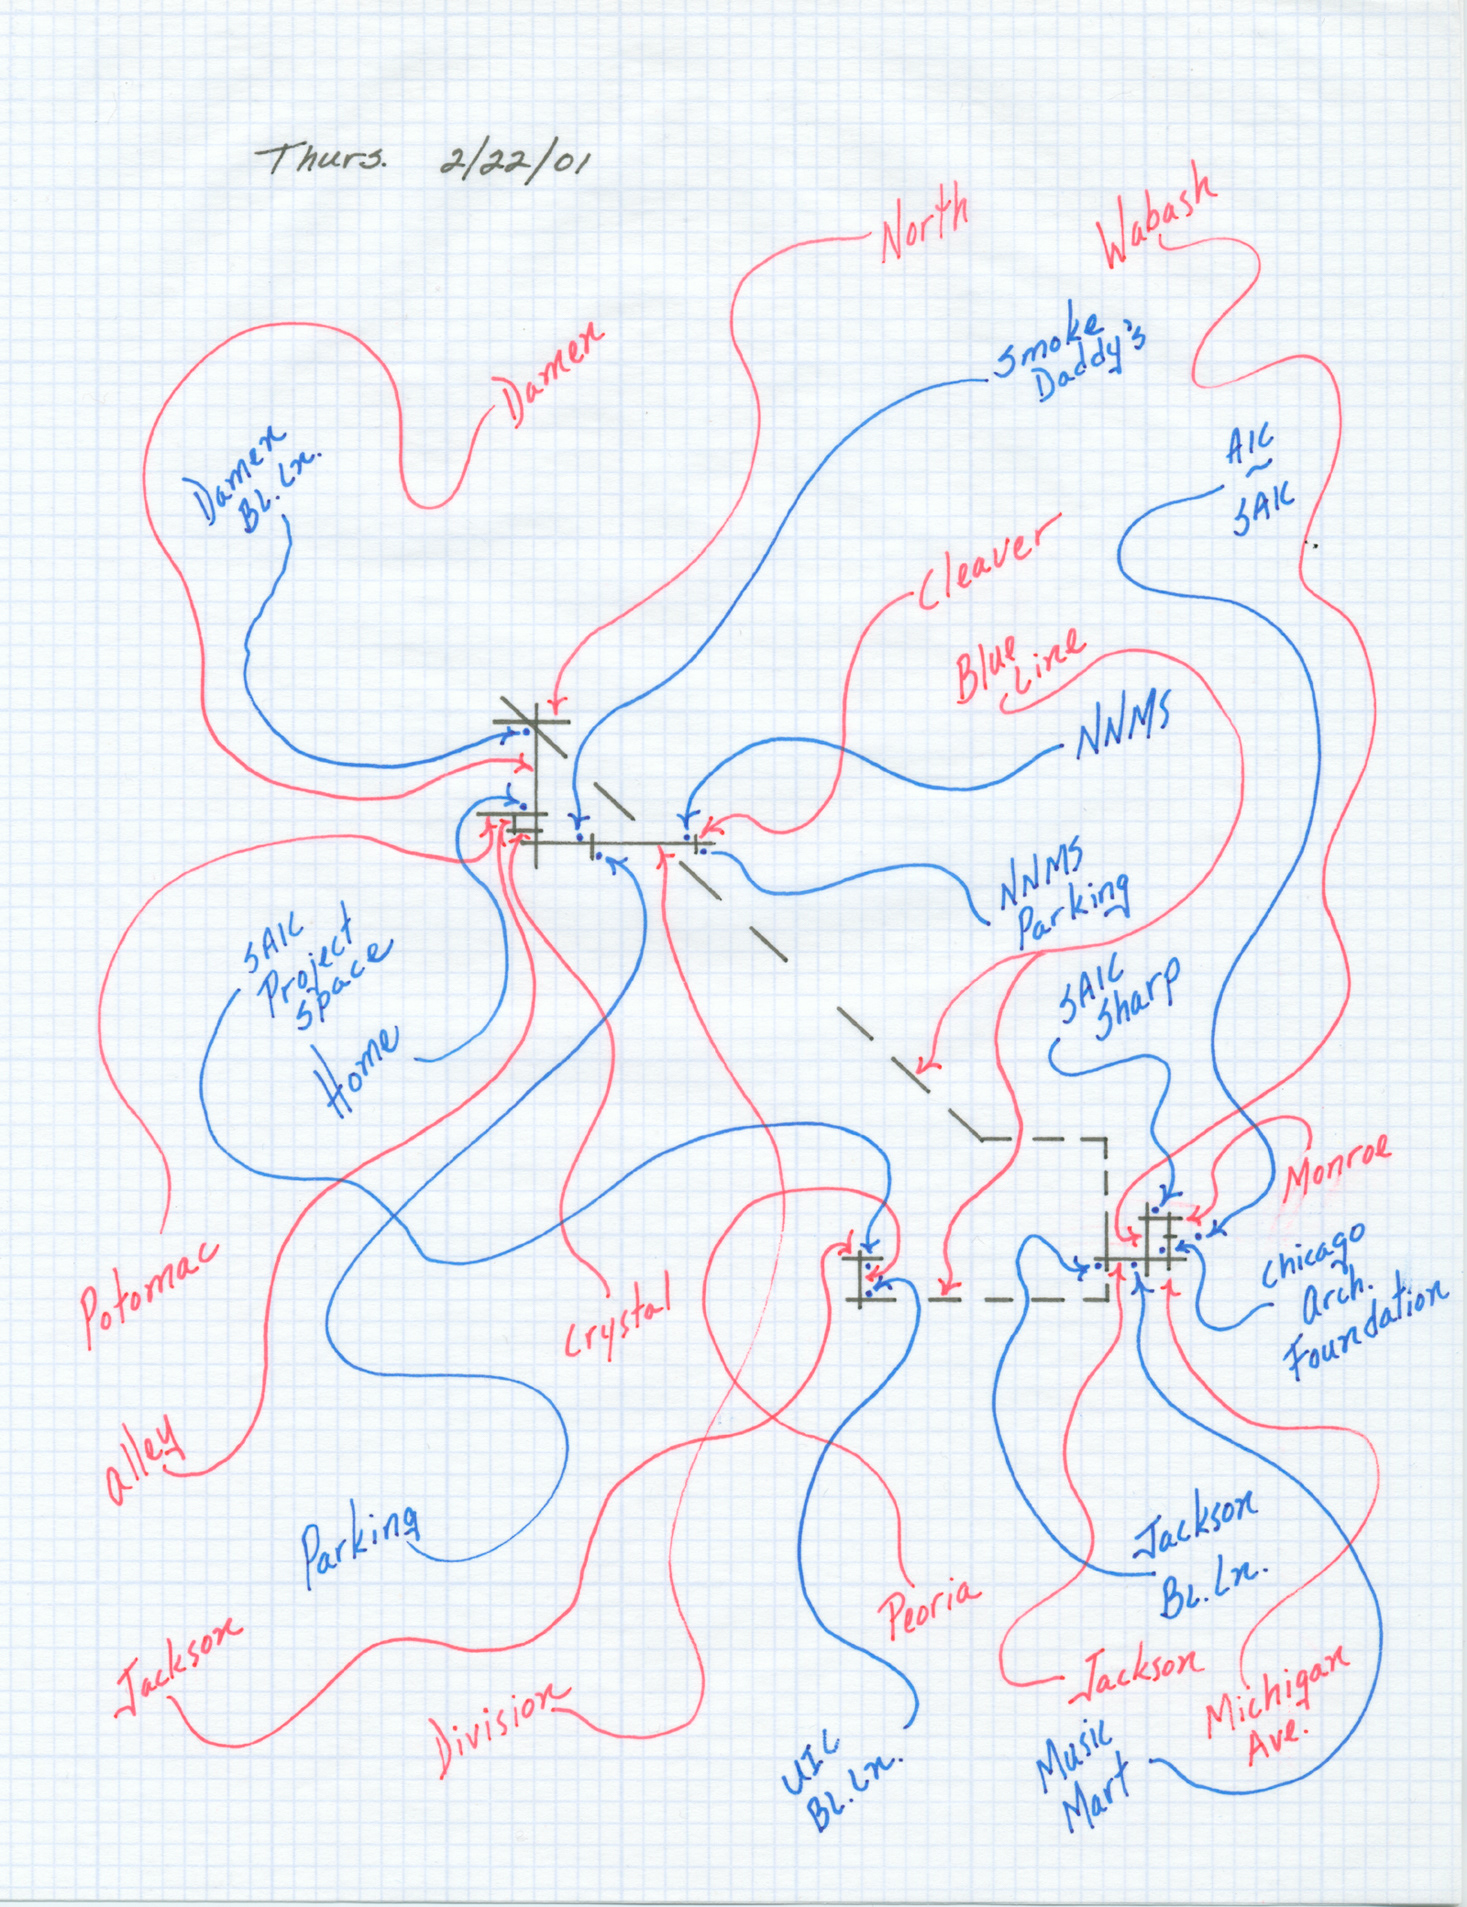 Thurs. 2/22/01
North
Wabash
Smoke
Daddy's
Damen
Damen
BL. Ln.
AIC
~
SAIC
Cleaver
Blue
Line
NNMS
NNMS
Parking
SAIC
Project
Space
SAIC
Sharp
Home
Monroe
Potomac
Chicago
Arch.
Foundation
Crystal
alley
Parking
Jackson
BL. Ln.
Peoria
Jackson
Jackson
Division
Michigan
Ave.
UIC
BL. Ln.
Music
Mart